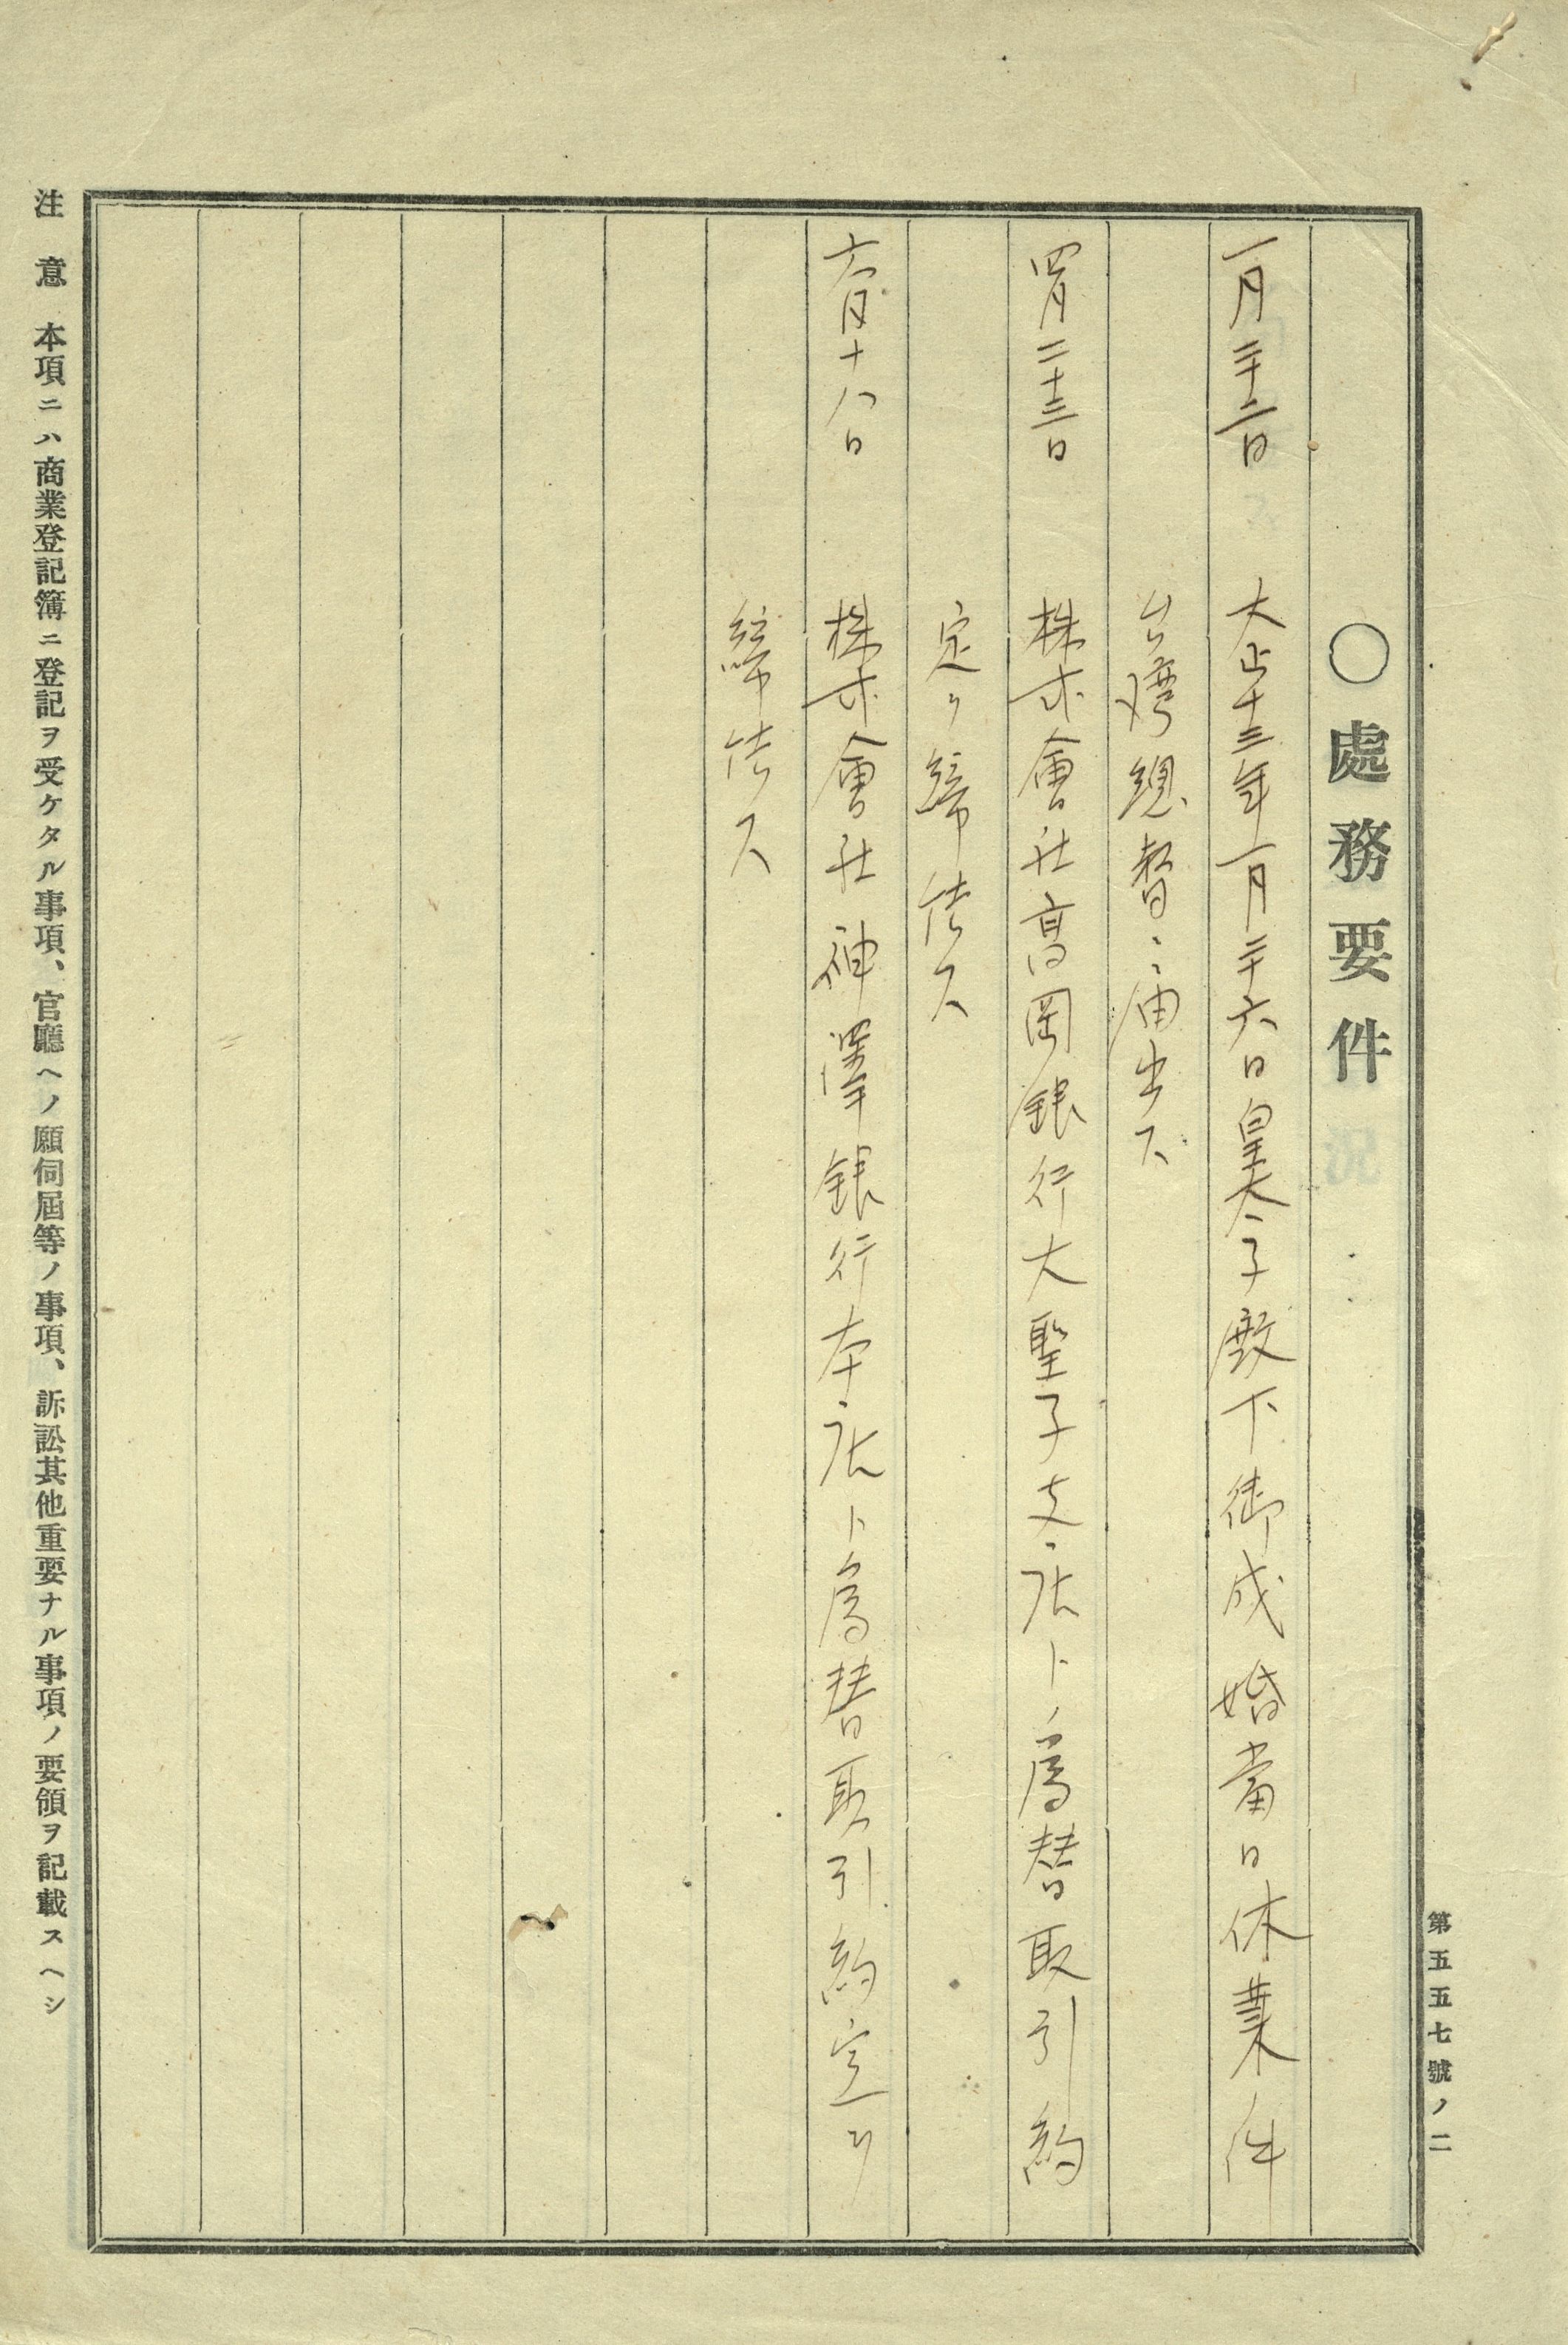 第五五七號ノ二
〇處務要件
一月二十二日　大正十三年一月二十六日皇太子殿下御成婚當日休業ノ件
台灣總督ニ届出ズ
四月二十三日　株式會社高岡銀行大聖寺支店ト爲替取引約
定ヲ締結ス
六月十八日　株式會社神澤銀行本店ト爲替取引約定ヲ
締結ス
注意　本項ニハ商業登記簿ニ登記ヲ受ケタル事項、官廳ヘノ願伺屆等ノ事項、訴訟其他重要ナル事項ノ要領ヲ記載スヘシ